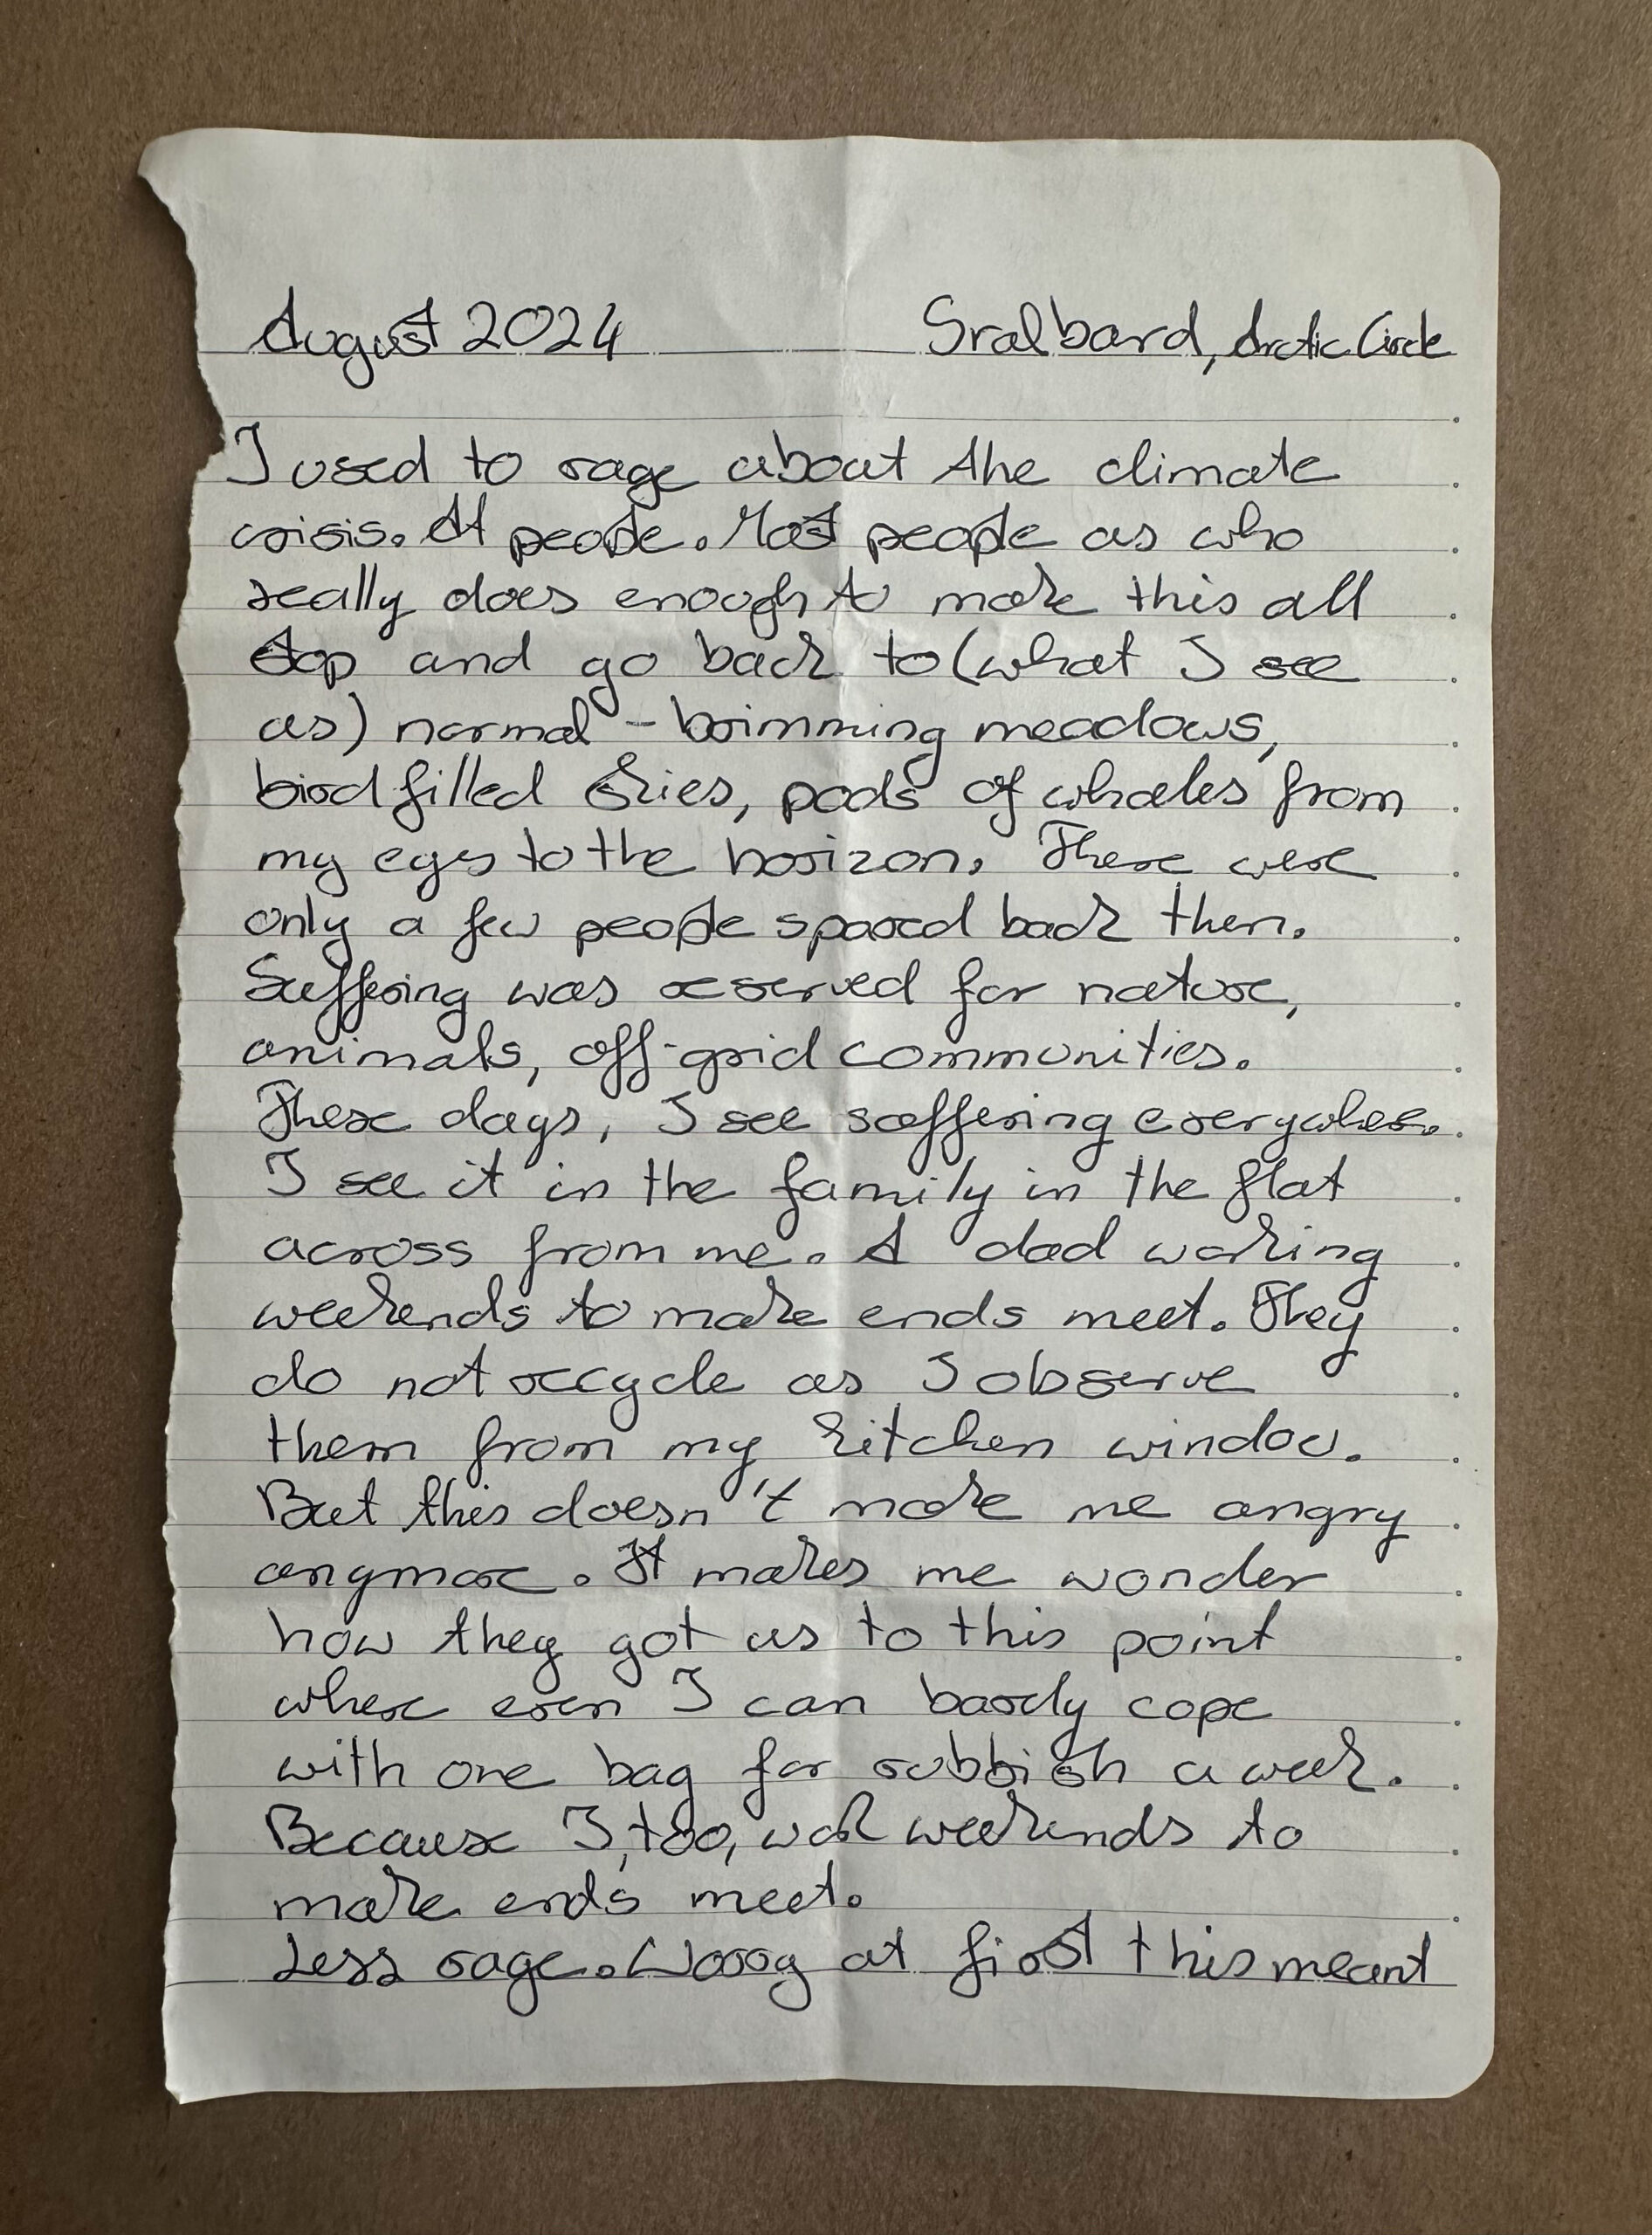 August 2024 Svalbard, Arctic Circle
I used to rage about the climate
crisis. At people. Most people as who
really does enough to make this all
stop and go back to (what I see
as) normal - brimming meadows,
bird filled skies, pods of whales from
my eyes to the horizon. There were
only a few people spared back then.
Suffering was reserved for nature,
animals, off-grid communities.
These days, I see suffering everywhere.
I see it in the family in the flat
across from me. A dad working
weekends to make ends meet. They
do not recycle as I observe
them from my kitchen window.
But this doesn't make me angry
anymore. It makes me wonder
how they got us to this point
where even I can barely cope
with one bag for rubbish a week.
Because I, too, work weekends to
make ends meet.
Less rage. Worry at first this meant